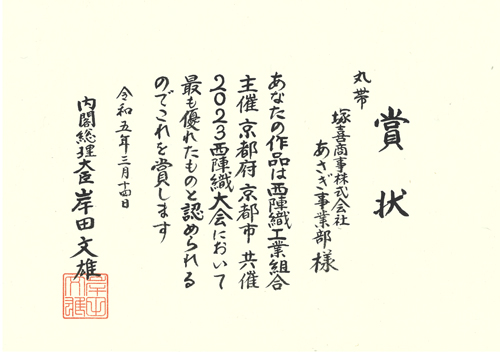 賞状
丸帯
塚喜商事株式会社
あさぎ事業部 様
あなたの作品は西陣織工業組合
主催 京都府 京都市 共催
2023西陣織大会において
最も優れたものと認められる
のでこれを賞します
令和五年三月十四日
内閣総理大臣 岸田文雄